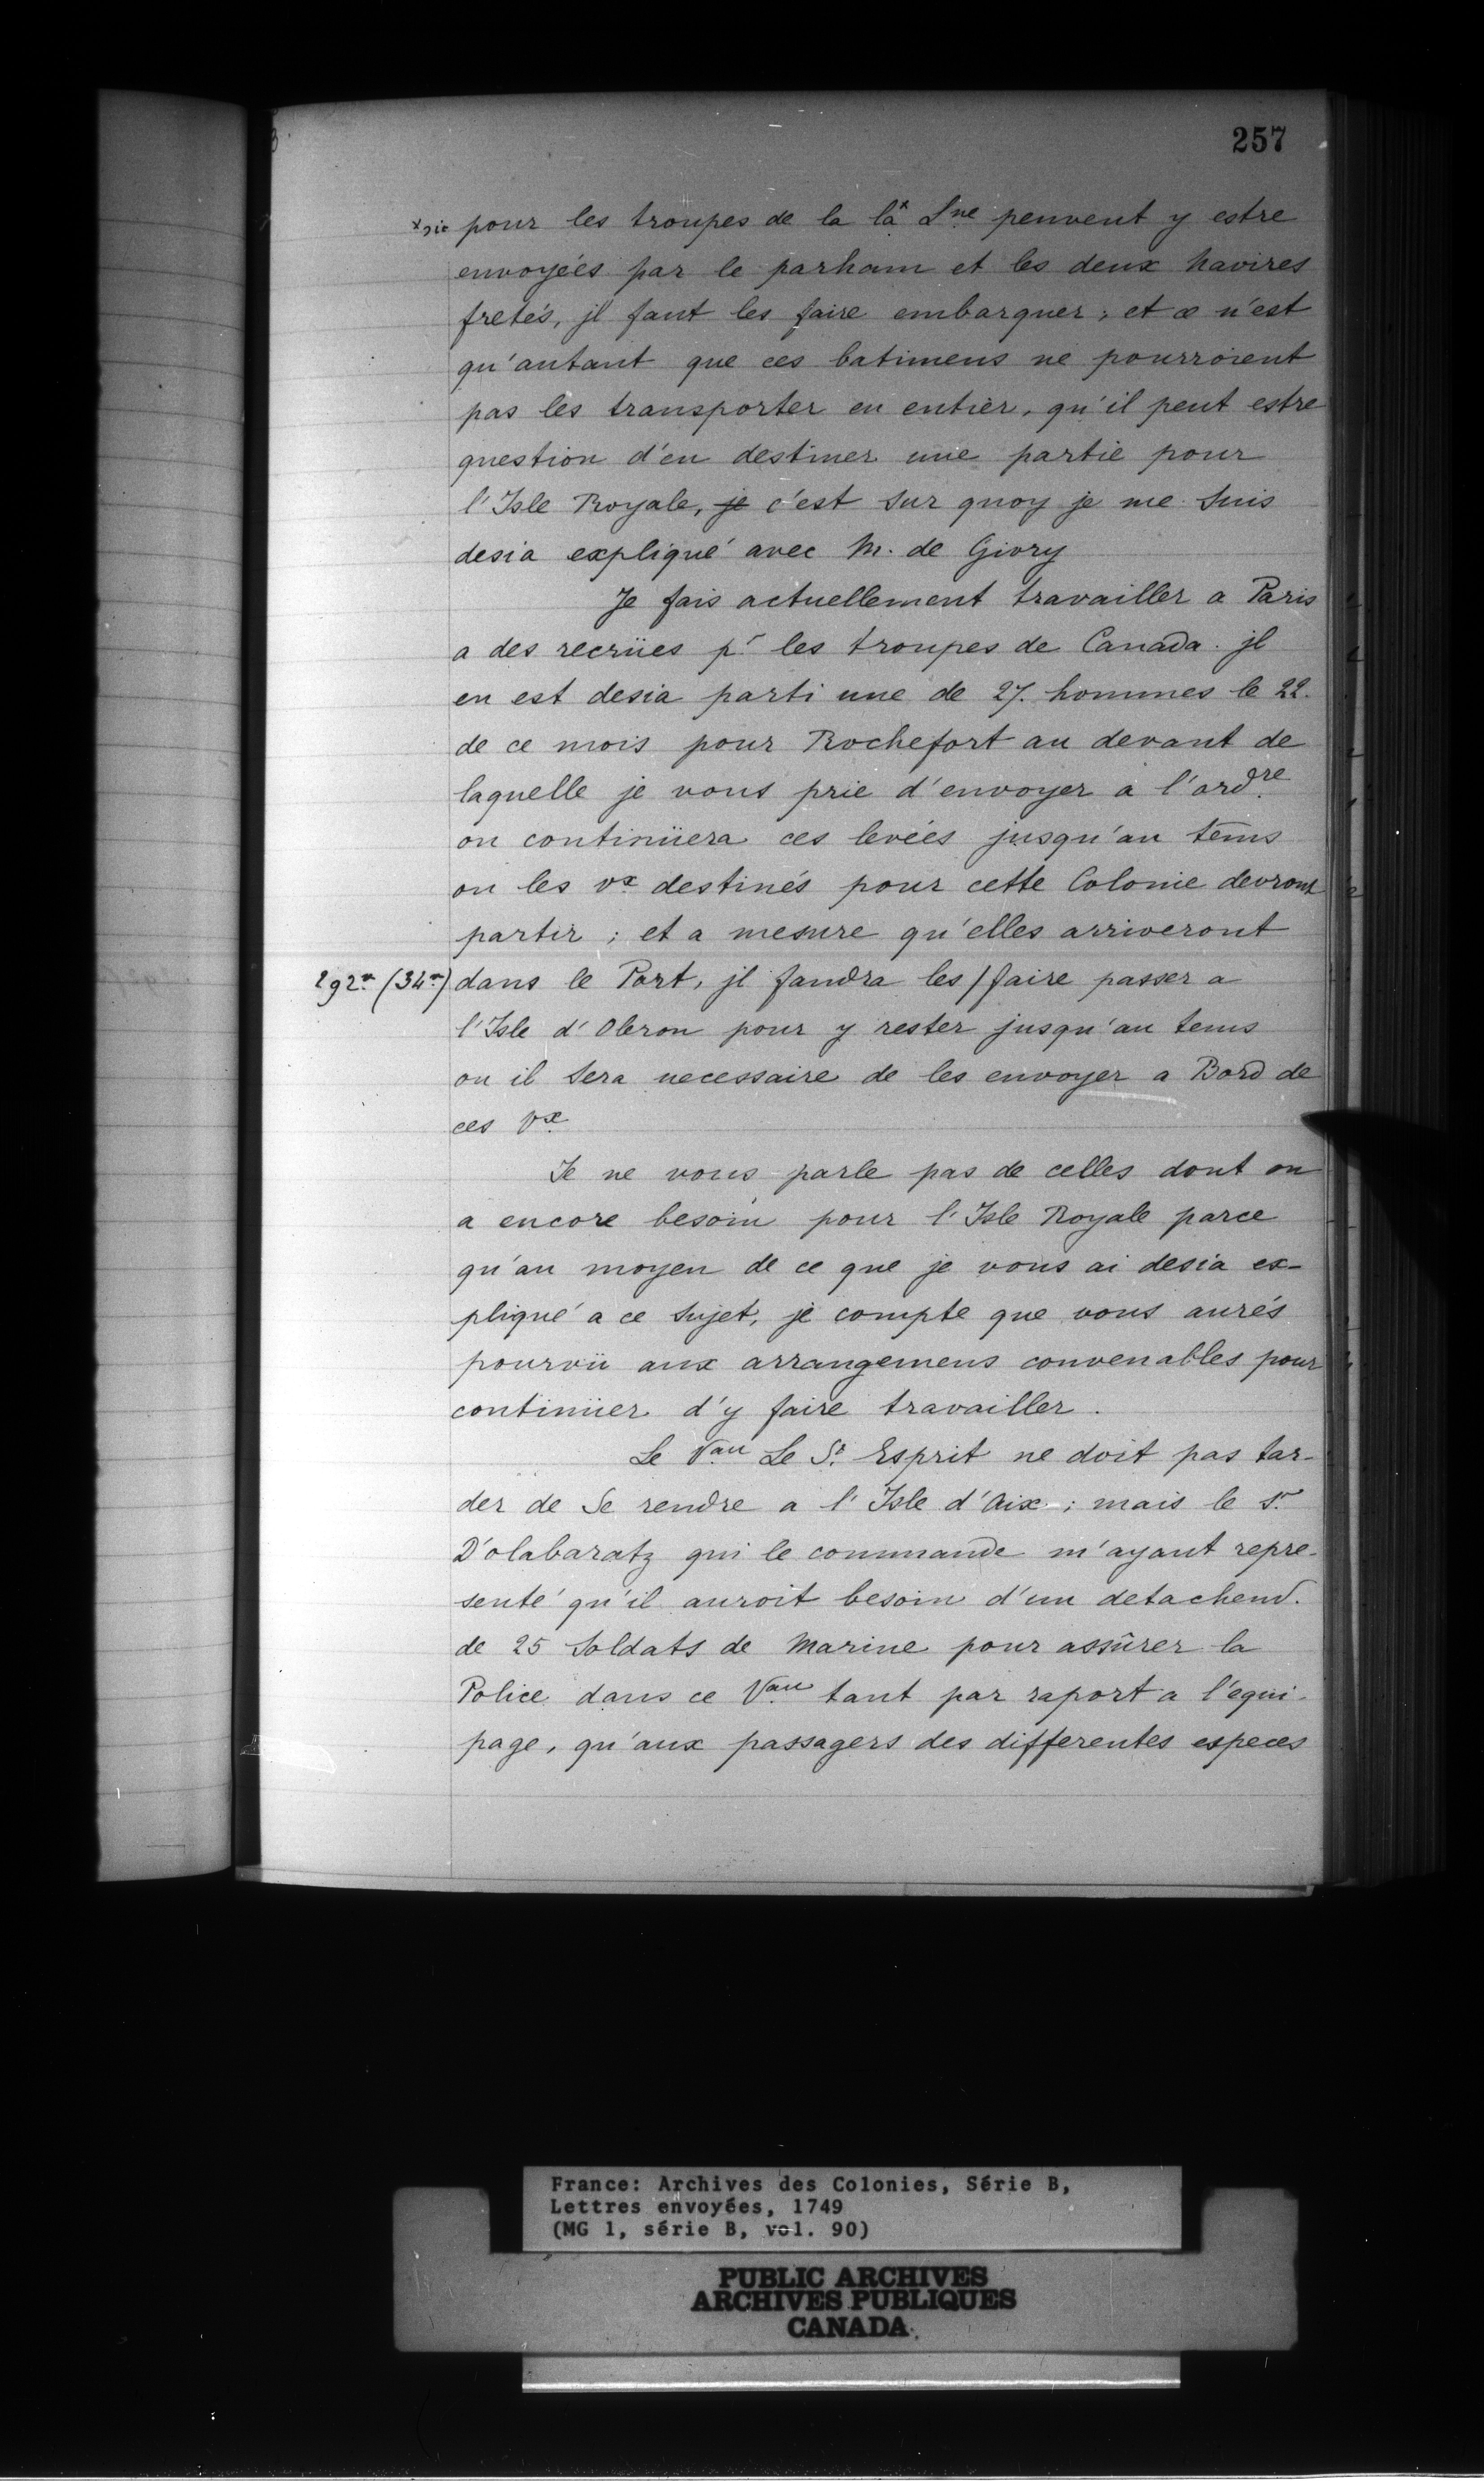 257
x sic pour les troupes de la la x Lne peuvent y estre
envoyées par le parham et les deux navires
fretés, jl faut les faire embarquer; et ce n'est
qu'autant que ces batimens ne pourroient
pas les transporter en entier, qu'il peut estre
question d'en destiner une partie pour
l'Isle Royale, je c'est sur quoy je me suis
desia expliqué avec M. de Givry
Je fais actuellement travailler a Paris
a des recrües pr les troupes de Canada. jl
en est desia parti une de 27. hommes le 22.
de ce mois pour Rochefort au devant de
laquelle je vous prie d'envoyer a l'ordre.
on continüera ces levées jusqu'au tems
ou les vx destinés pour cette Colonie devront
partir; et a mesure qu'elles arriveront
292r (34r) dans le Port, jl faudra les / faire passer a
l'Isle d'Oleron pour y rester jusqu'au tems
ou il sera necessaire de les envoyer a Bord de
ces vx
Je ne vous parle pas de celles dont on
a encore besoin pour l'Isle Royale parce
qu'au moyen de ce que je vous ai desia ex-
pliqué a ce sujet, je compte que vous aurés
pourvü aux arrangemens convenables pour
continüer d'y faire travailler.
Le Vau Le St Esprit ne doit pas tar-
der de se rendre a l'Isle d'Aix; mais le sr
D'olabaratz qui le commande m'ayant repre-
senté qu'il auroit besoin d'un detachemt.
de 25 soldats de Marine pour assûrer la
Police dans ce Vau tant par raport a l'equi-
page, qu'aux passagers des differentes especes
France: Archives des Colonies, Série B,
Lettres envoyées, 1749
(MG 1, série B, vol. 90)
PUBLIC ARCHIVES
ARCHIVES PUBLIQUES
CANADA